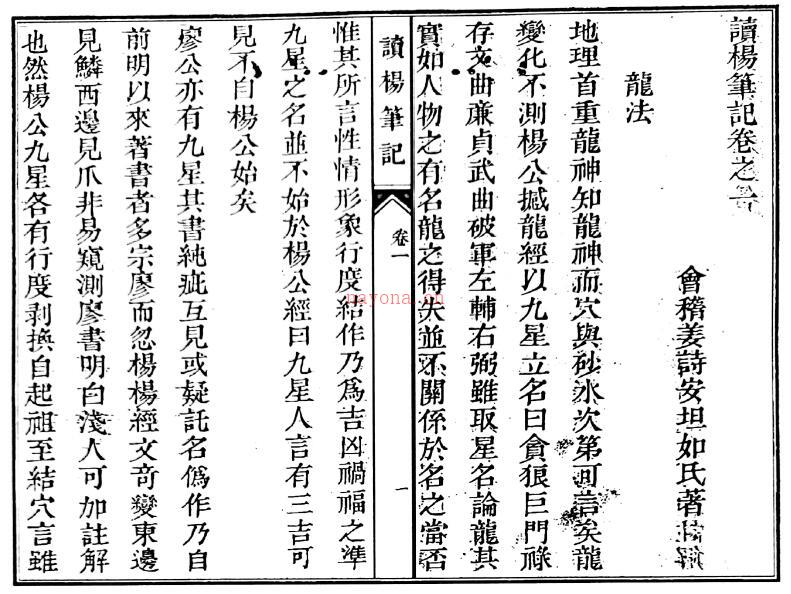 讀楊筆記卷之一
會稽姜詩安坦如氏著
龍法
地理首重龍神知龍神而穴與砂水次第可言矣龍
變化不測楊公撼龍經以九星立名曰貪狼巨門祿
存文曲廉貞武曲破軍左輔右弼雖取星名論龍其
實如人物之有名龍之得失並不關係於名之當否
讀楊筆記
卷一
一
惟其所言性情形象行度結作乃爲吉凶禍福之準
九星之名並不始於楊公經曰九星人言有三吉可
見不自楊公始矣
廖公亦有九星其書純疵互見或疑託名僞作乃自
前明以來著書者多宗廖而忽楊楊經文奇變東邊
見鱗西邊見爪非易窺測廖書明白淺人可加註解
也然楊公九星各有行度剥換自起祖至結穴言雖
nayona.cn